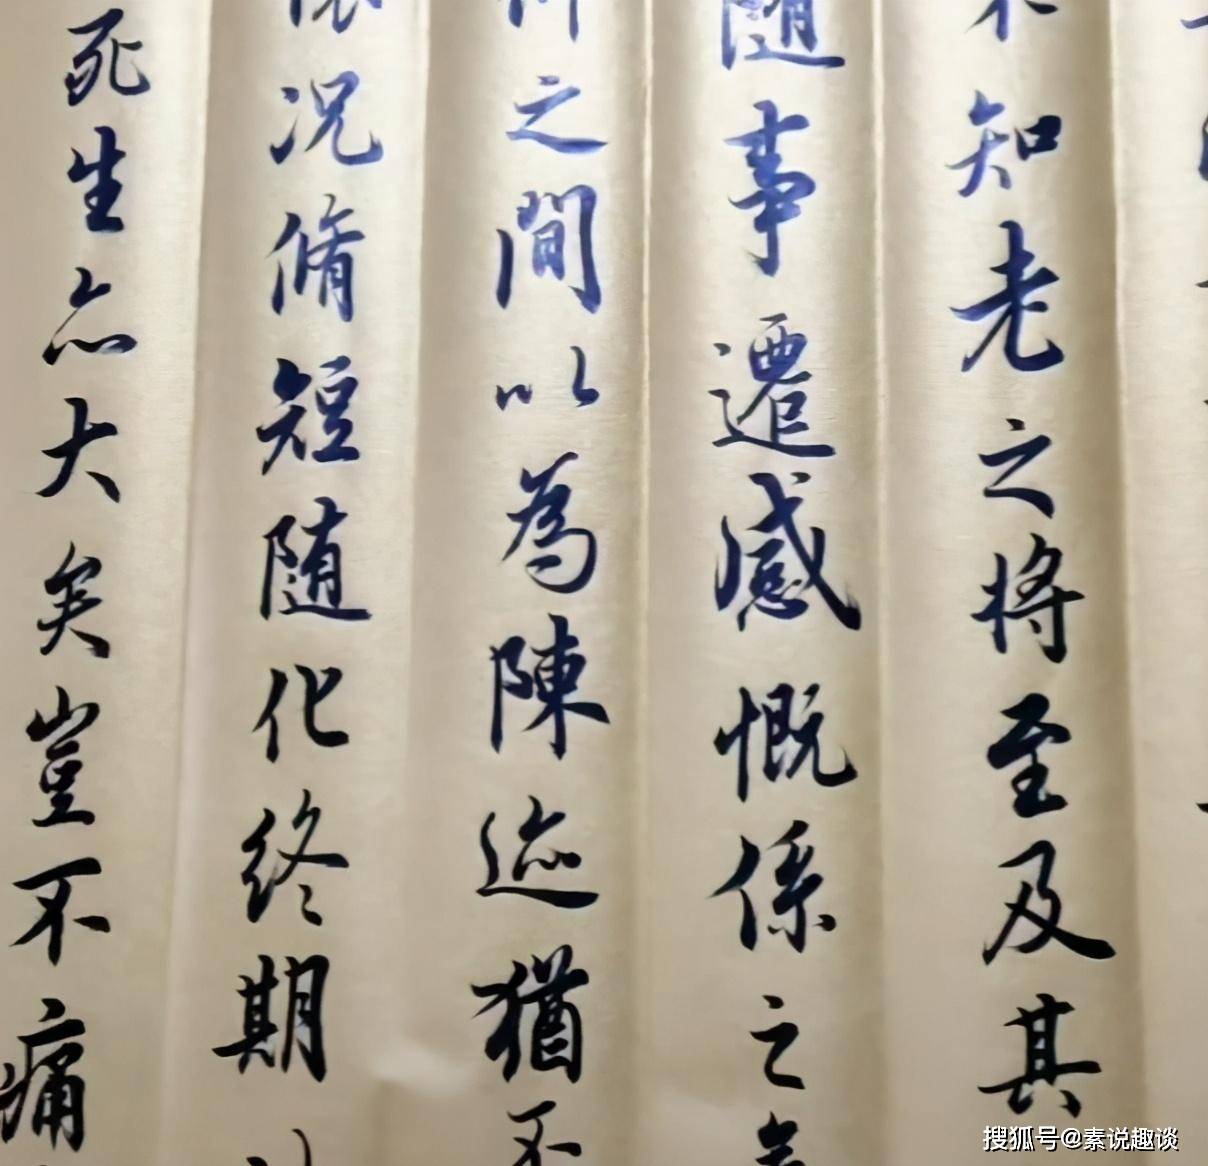 不知老之将至及其
随事遷感慨係之
之間以為陳迹猶不
况脩短随化终期
死生亦大矣豈不痛
搜狐号@素说趣谈